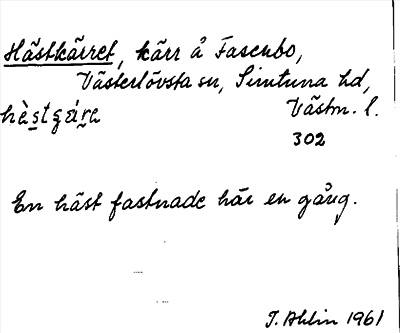 Hästkärret, kärr å Fasenbo,
Västerlövsta sn, Simtuna hd,
hès̱tgára Västm. l.
302
En häst fastnade här en gång.
T. Ahlin 1961